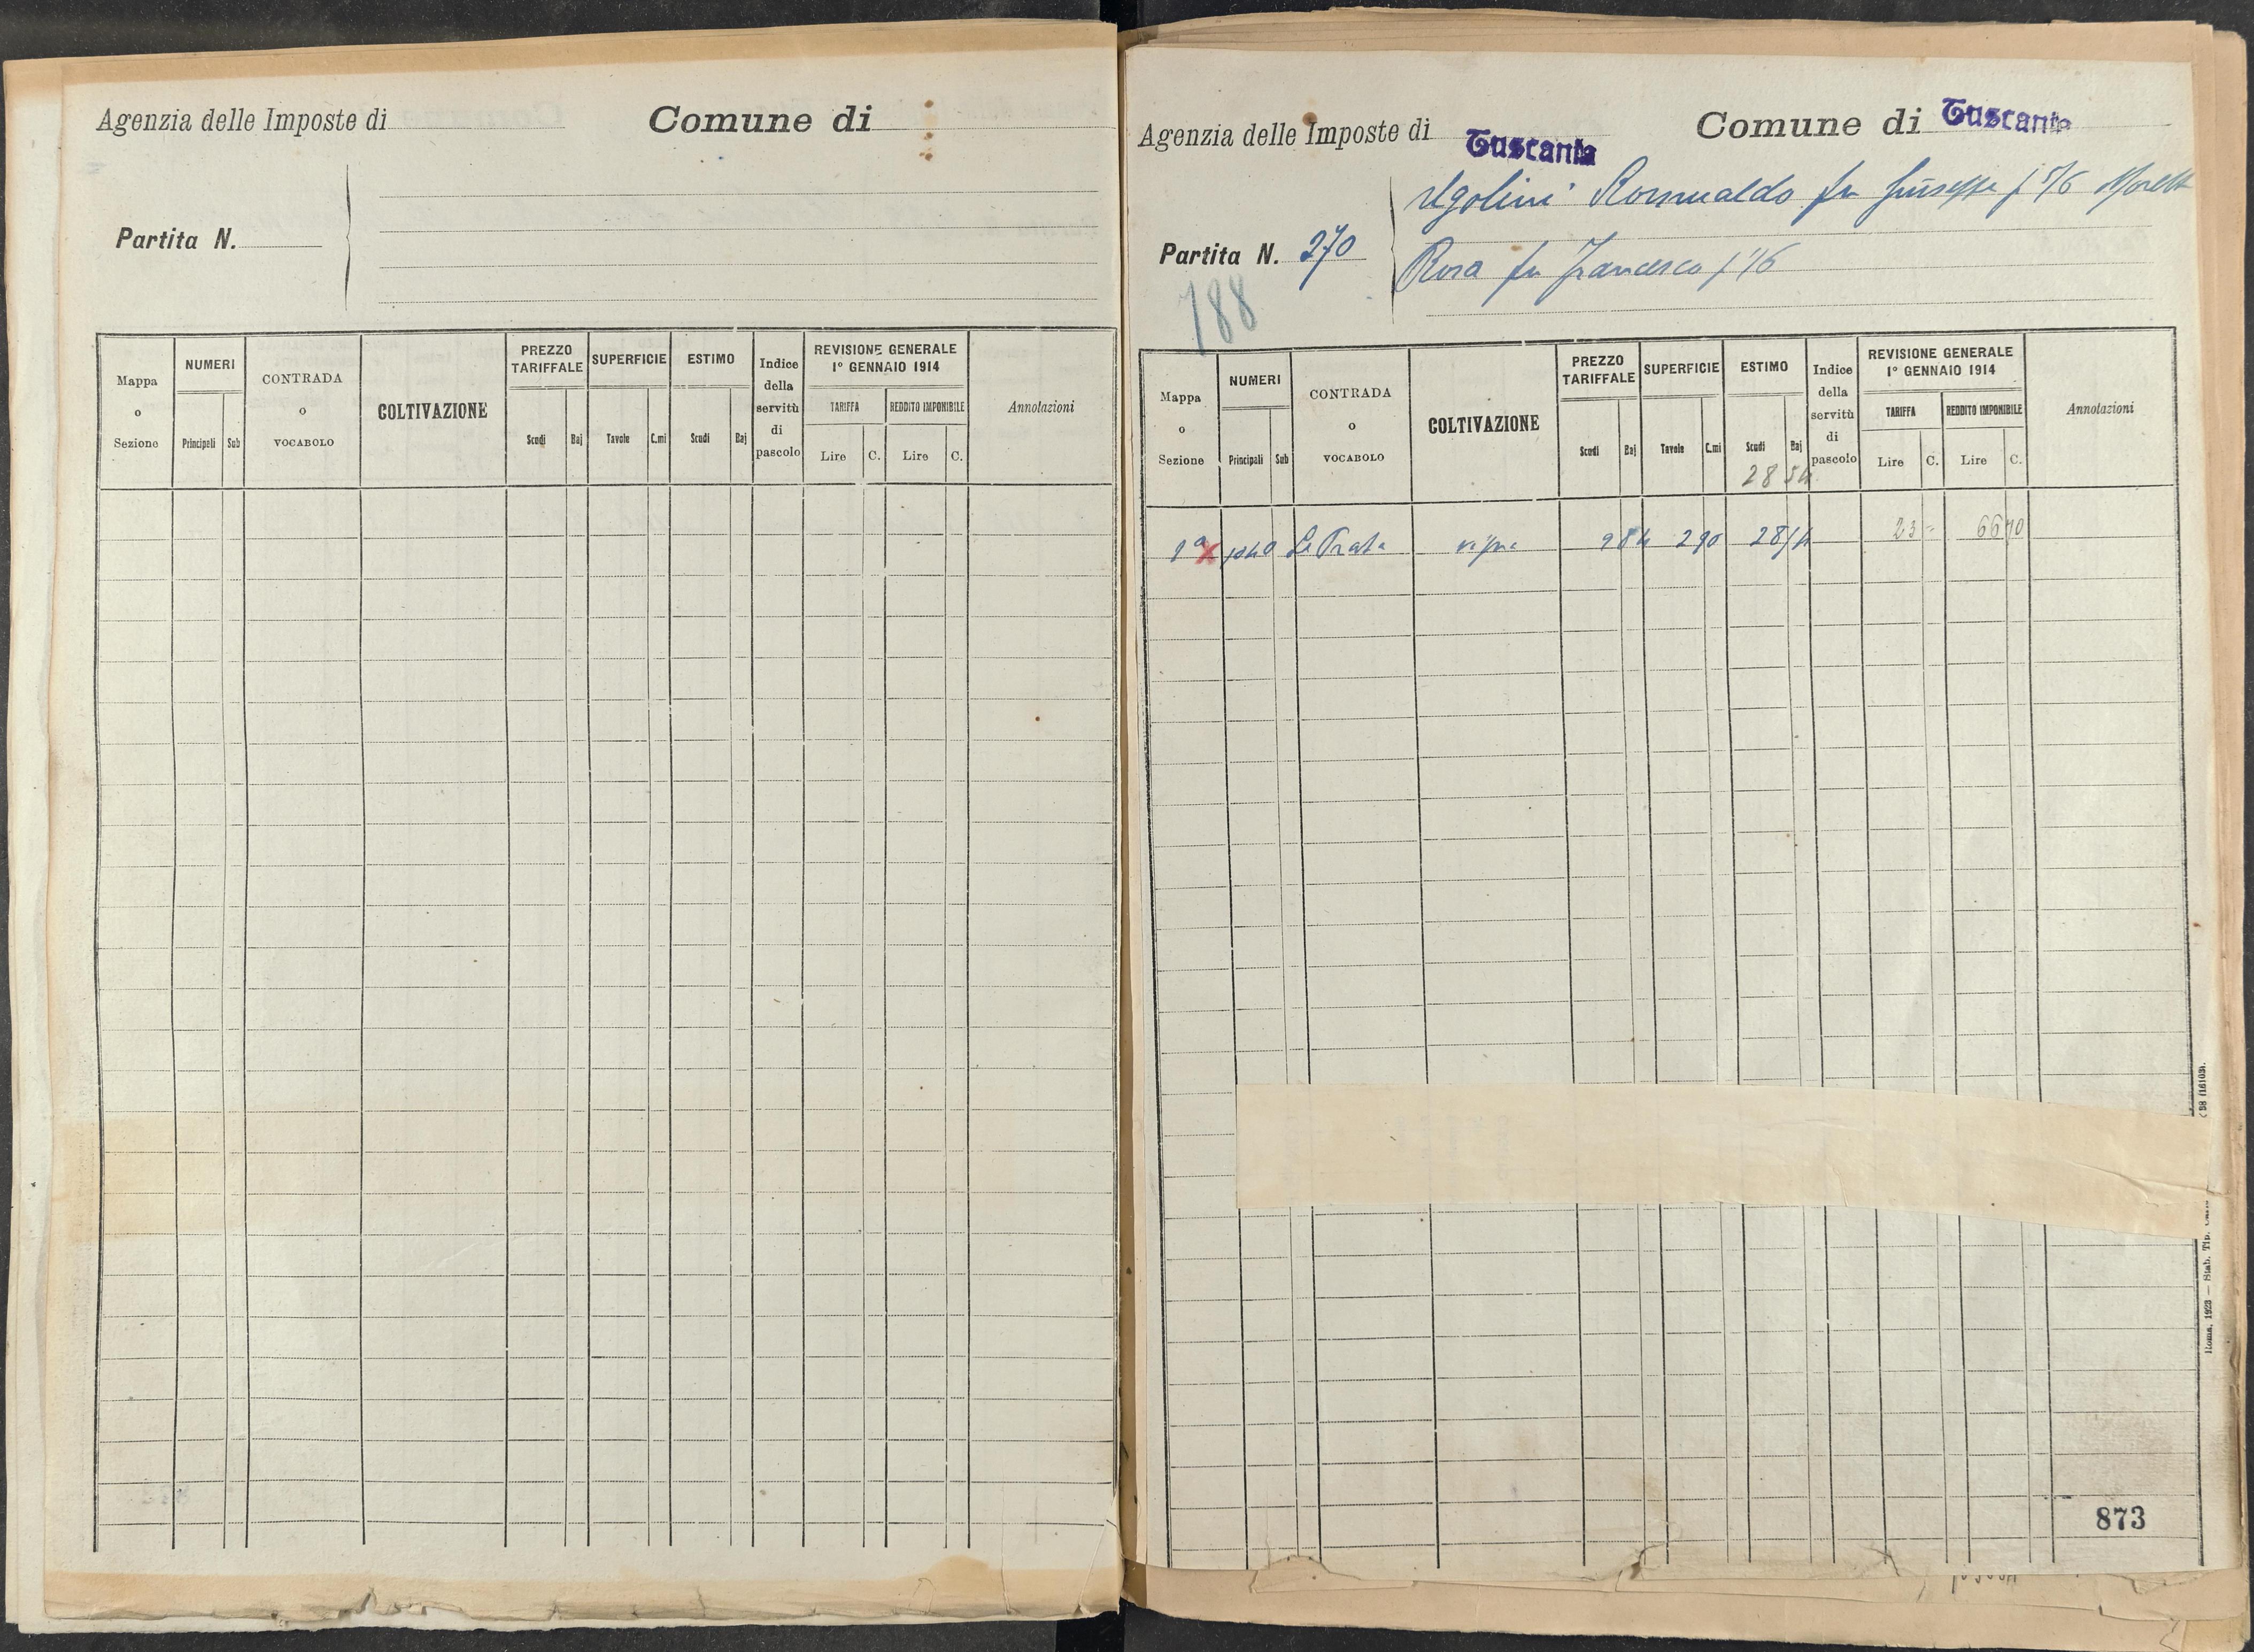 Agenzia delle Imposte di
Comune di
Partita N.
Mappa o Sezione
NUMERI
Principali Sub
CONTRADA o VOCABOLO
COLTIVAZIONE
PREZZO TARIFFALE
Scudi Baj
SUPERFICIE
Tavole C.mi
ESTIMO
Scudi Baj
Indice della servitù di pascolo
REVISIONE GENERALE
1° GENNAIO 1914
TARIFFA
Lire C.
REDDITO IMPONIBILE
Lire C.
Annotazioni
Agenzia delle Imposte di Tuscania
Comune di Tuscania
Ugolini Romualdo fu Giuseppe p 5/6
Partita N. 270
Rosa fu Francesco p 1/6
788
Mappa o Sezione
NUMERI
Principali Sub
CONTRADA o VOCABOLO
COLTIVAZIONE
PREZZO TARIFFALE
Scudi Baj
SUPERFICIE
Tavole C.mi
ESTIMO
Scudi Baj
28 54
Indice della servitù di pascolo
REVISIONE GENERALE
1° GENNAIO 1914
TARIFFA
Lire C.
REDDITO IMPONIBILE
Lire C.
Annotazioni
vigna 9 84 2 90 28 54 23 = 66 70
Roma, 1923 — Stab. Tip.
873